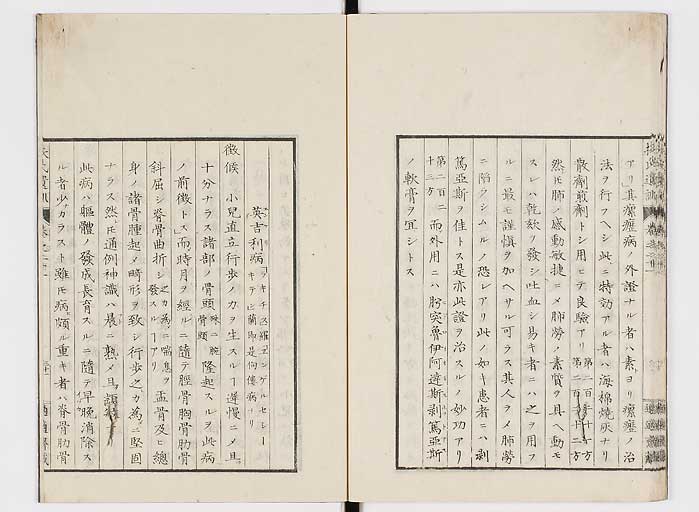 アリ其瘰癧病ノ外證ナル者ハ素ヨリ瘰癧ノ治
法ヲ行フヘシ此ニ特効アル者ハ海綿燒灰ナリ
散劑煎劑トシ用ヒテ良驗アリ第二百十一方第二百十二方
然𪜈肺ノ感動敏捷ニメ肺勞ノ素質ヲ具ヘ動モ
スレハ乾欬ヲ發シ吐血シ易キ者ニハ之ヲ用フ
ルニ最モ謹愼ヲ加ヘサル可ラス其人ヲメ肺勞
ニ陷ラシムルノ恐レアリ此ノ如キ患者ニハ剥
篤亞斯ヲ佳トス是亦此證ヲ治スルノ妙功アリ
第二百十三方而外用ニハ䏶突魯伊阿達斯剥篤亞斯
ノ軟膏ヲ宜シトス
英吉利病
徴候 小兒直立行歩ノ力ヲ生スルヿ遲慢ニメ且
十分ナラス諸部ノ骨頭殊ニ腕骨頭隆起スルヲ此病
ノ前徴トス而時月ヲ經ルニ隨テ脛骨胸骨肋骨
斜屈シ脊骨曲折シ之カ為ニ喘息ヲ發スルヿアリ盂骨及ヒ總
身ノ諸骨腫起メ畸形ヲ致シ行歩之カ為ニ堅固
ナラス然𪜈通例神識ハ晨ニ熟メ且
此病ハ軀體ノ發成長育スルニ隨テ早晩消除ス
ル者少カラスト雖𪜈病頗ル重キ者ハ脊骨肋骨